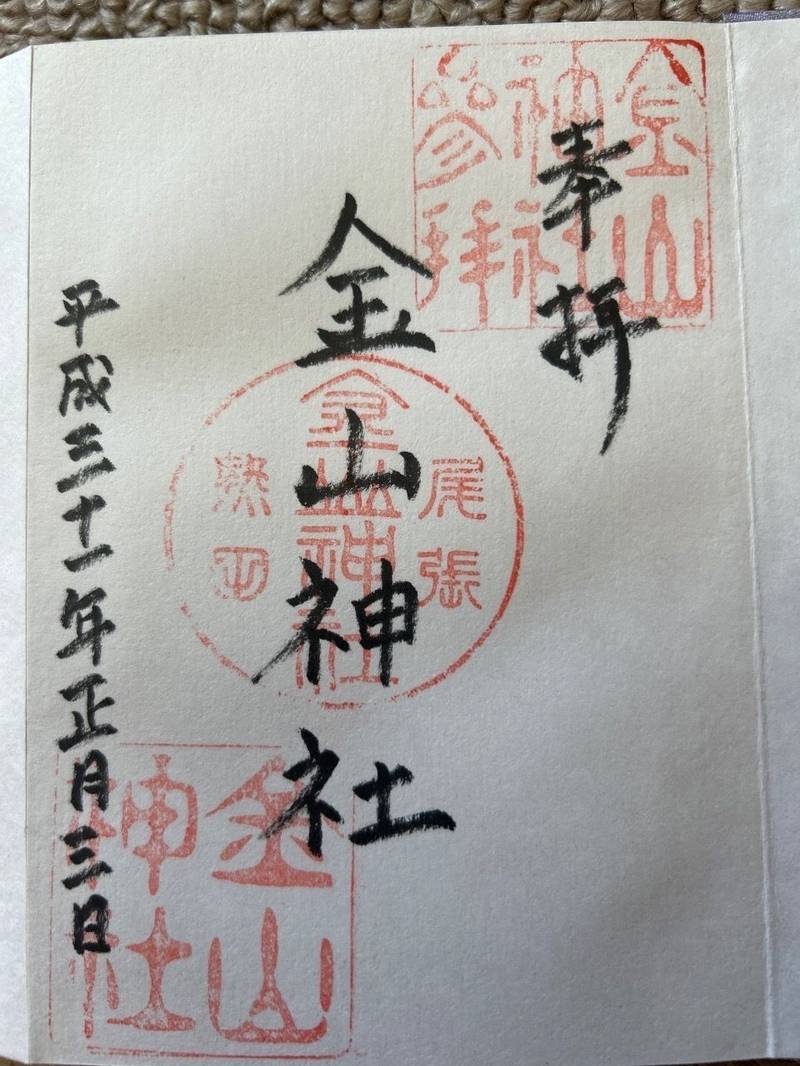 奉拝
金山神社
平成三十一年正月三日
金山
神社
参拝
尾張
金山神社
熱田
金山
神社